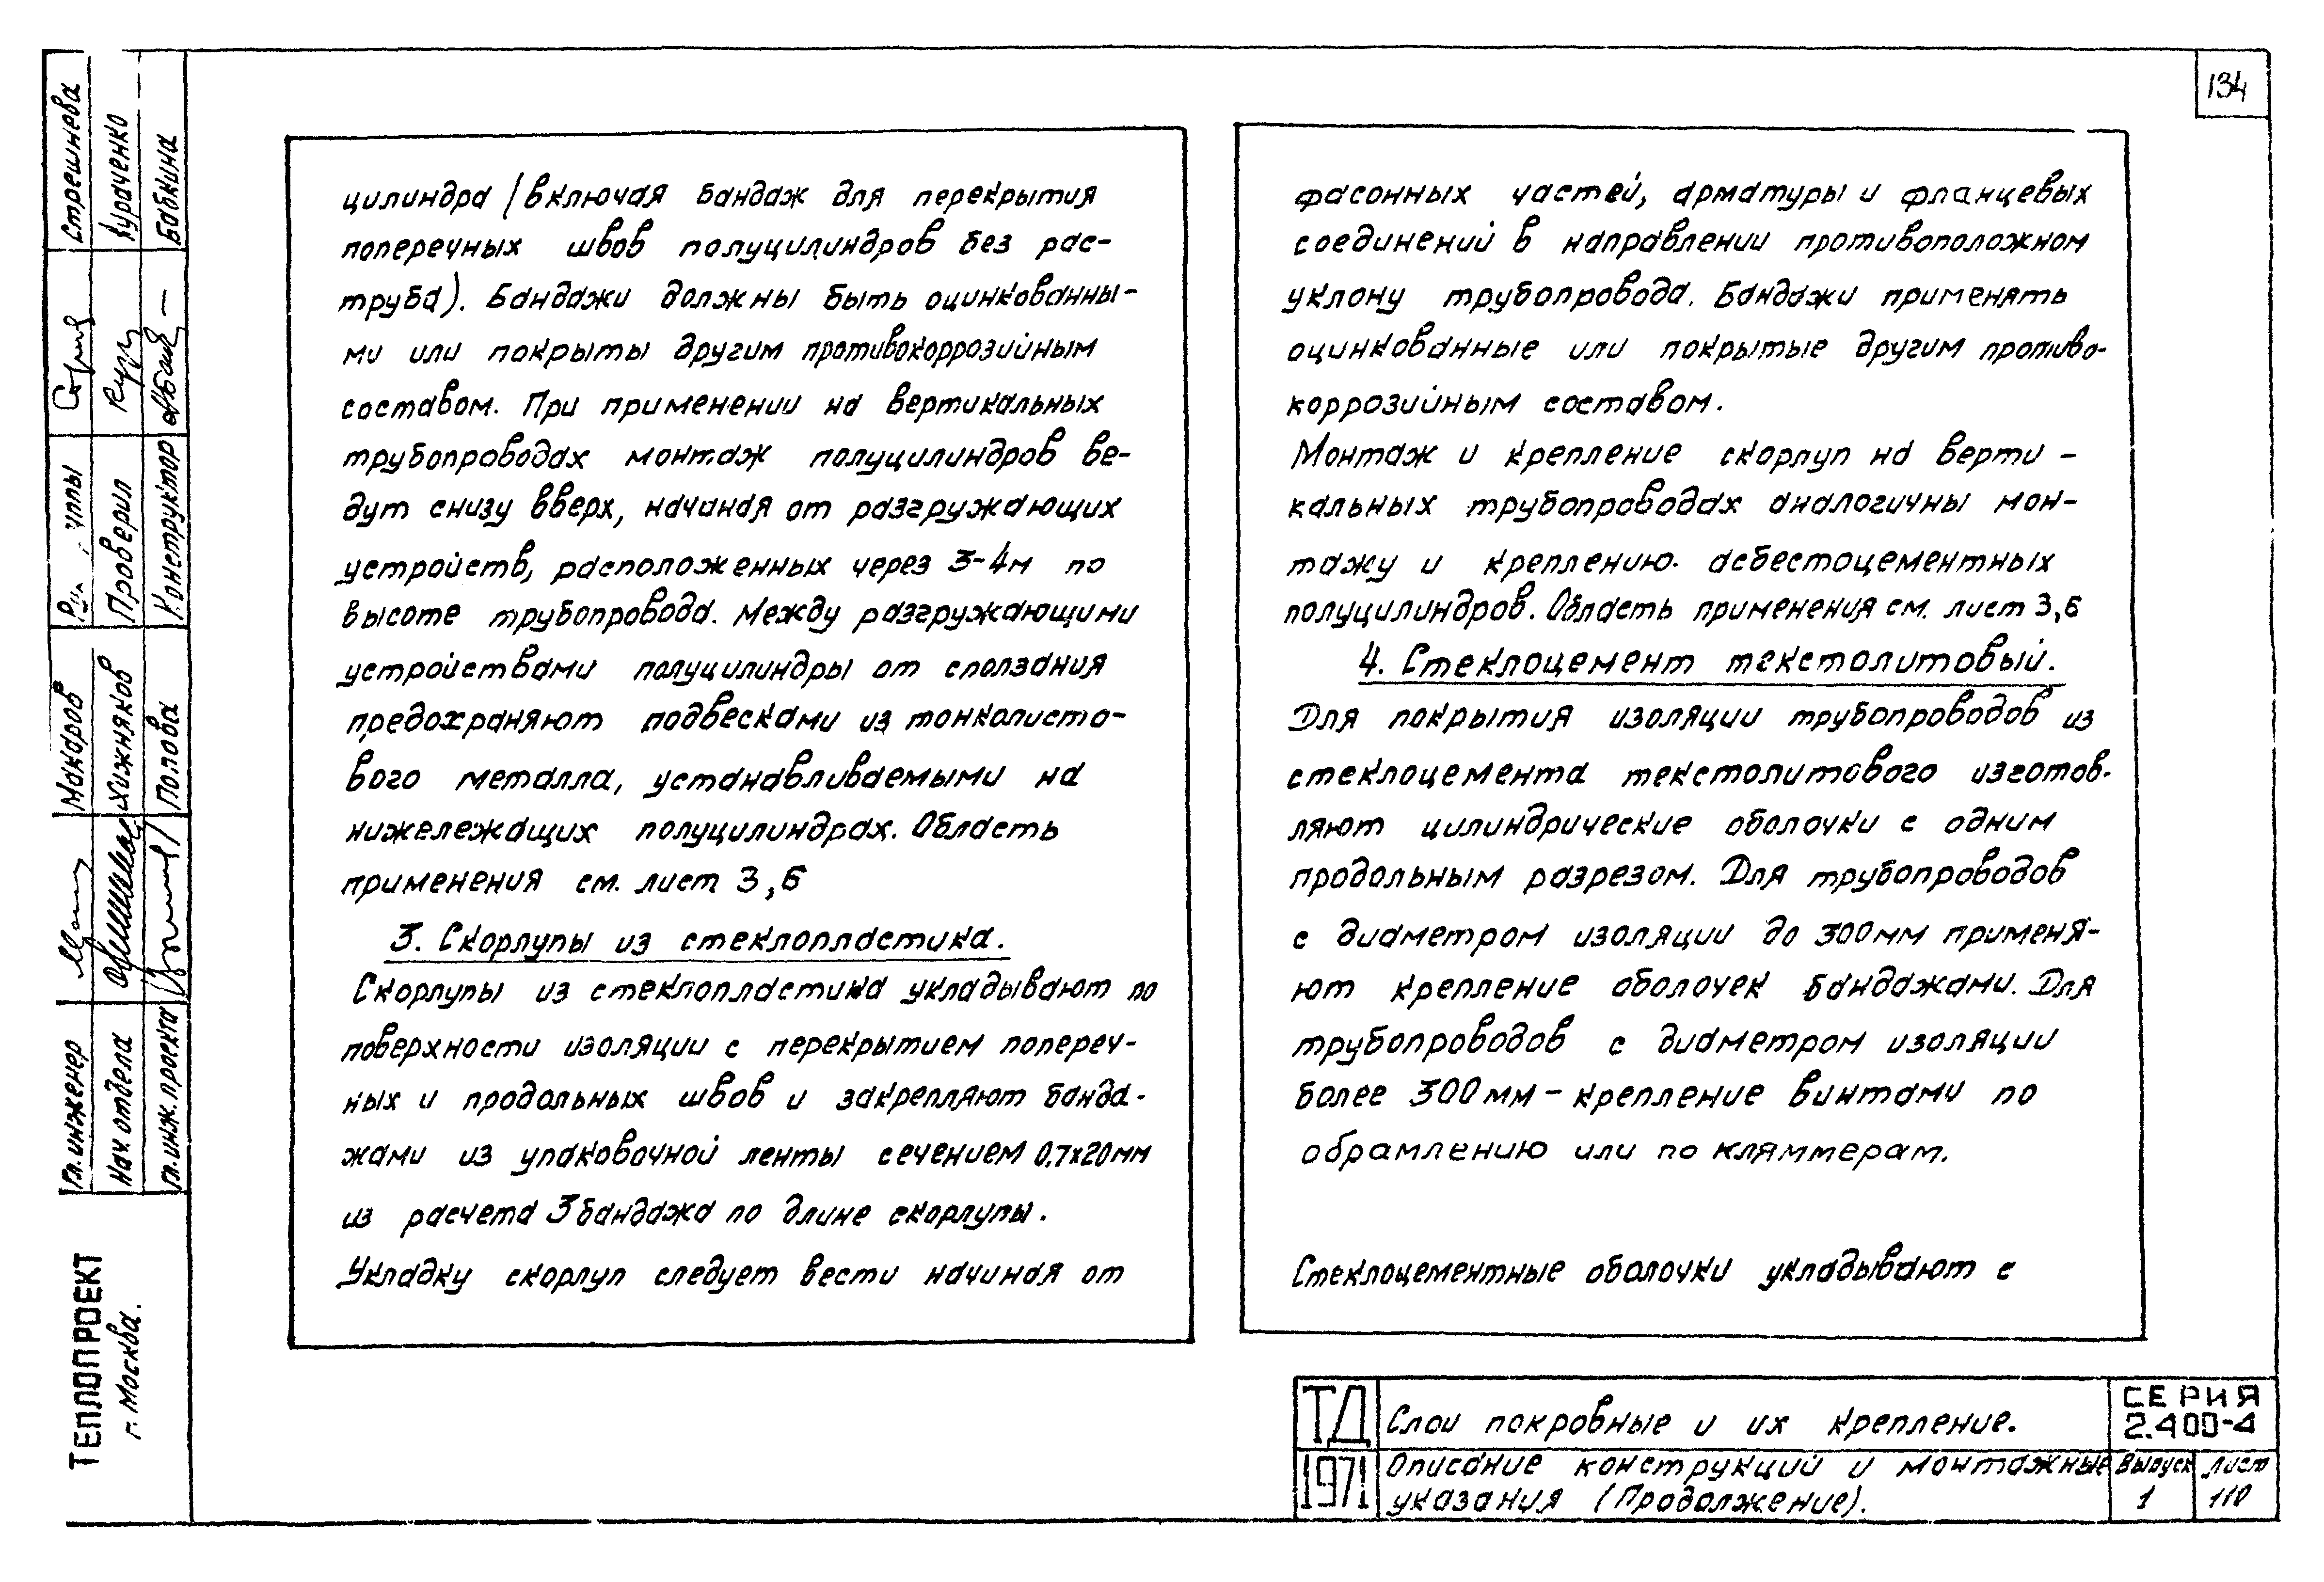 134
цилиндра (включая бандаж для перекрытия
поперечных швов полуцилиндров без рас-
труба). Бандажи должны быть оцинкованны-
ми или покрыты другим противокоррозийным
составом. При применении на вертикальных
трубопроводах монтаж полуцилиндров ве-
дут снизу вверх, начиная от разгружающих
устройств, расположенных через 3-4м по
высоте трубопровода. Между разгружающими
устройствами полуцилиндры от сползания
предохраняют подвесками из тонколисто-
вого металла, устанавливаемыми на
нижележащих полуцилиндрах. Область
применения см. лист 3,6
3. Скорлупы из стеклопластика.
Скорлупы из стеклопластика укладывают по
поверхности изоляции с перекрытием попереч-
ных и продольных швов и закрепляют банда-
жами из упаковочной ленты сечением 0,7х20мм
из расчета 3 бандажа по длине скорлупы.
Укладку скорлуп следует вести начиная от
фасонных частей, арматуры и фланцевых
соединений в направлении противоположном
уклону трубопровода. Бандажи применять
оцинкованные или покрытые другим противо-
коррозийным составом.
Монтаж и крепление скорлуп на верти-
кальных трубопроводах аналогичны мон-
тажу и креплению асбестоцементных
полуцилиндров. Область применения см. лист 3,6
4. Стеклоцемент текстолитовый.
Для покрытия изоляции трубопроводов из
стеклоцемента текстолитового изготов-
ляют цилиндрические оболочки с одним
продольным разрезом. Для трубопроводов
с диаметром изоляции до 300мм применя-
ют крепление оболочек бандажами. Для
трубопроводов с диаметром изоляции
более 300мм - крепление винтами по
обрамлению или по кляммерам.
Стеклоцементные оболочки укладывают с
Гл. инженер Макаров Стрешнева
Нач. отдела Хижняков Проверил
Гл. инж. проекта Попова Конструктор Бабкина
ТЕПЛОПРОЕКТ
г. Москва.
ТД Слои покровные и их крепление. СЕРИЯ
2.400-4
1971 Описание конструкций и монтажные Выпуск лист
указания (Продолжение). 1